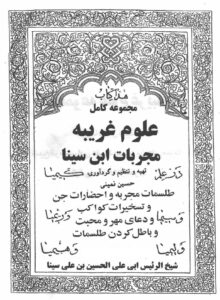 مجموعه کامل
علوم غریبه
مجربات ابن سینا
تهیه و تنظیم و گردآوری
حسین نمینی
طلسمات مجربه و احضارات جن
و تسخیرات کواکب
و دعای مهر و محبت
و باطل کردن طلسمات
شیخ الرئیس ابی علی الحسین بن علی سینا